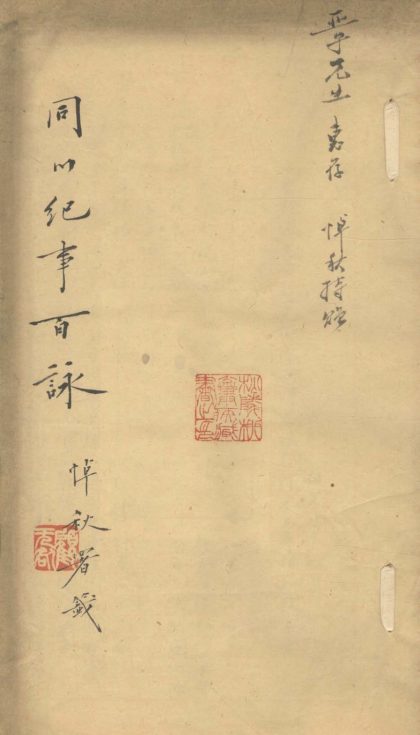 亞子先生 惠存 悼秋持贈
同川紀事百詠
悼秋署籤
顧无咎